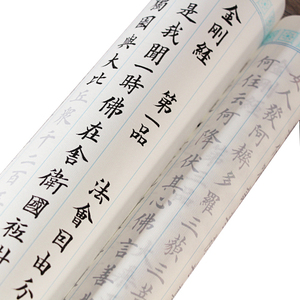 金剛経 第一品 法會因由分
是我聞一時佛在舍衛國祇樹
獨園與大比丘衆千二百
女人發阿耨多羅三藐三菩
何住云何降伏其心佛言善